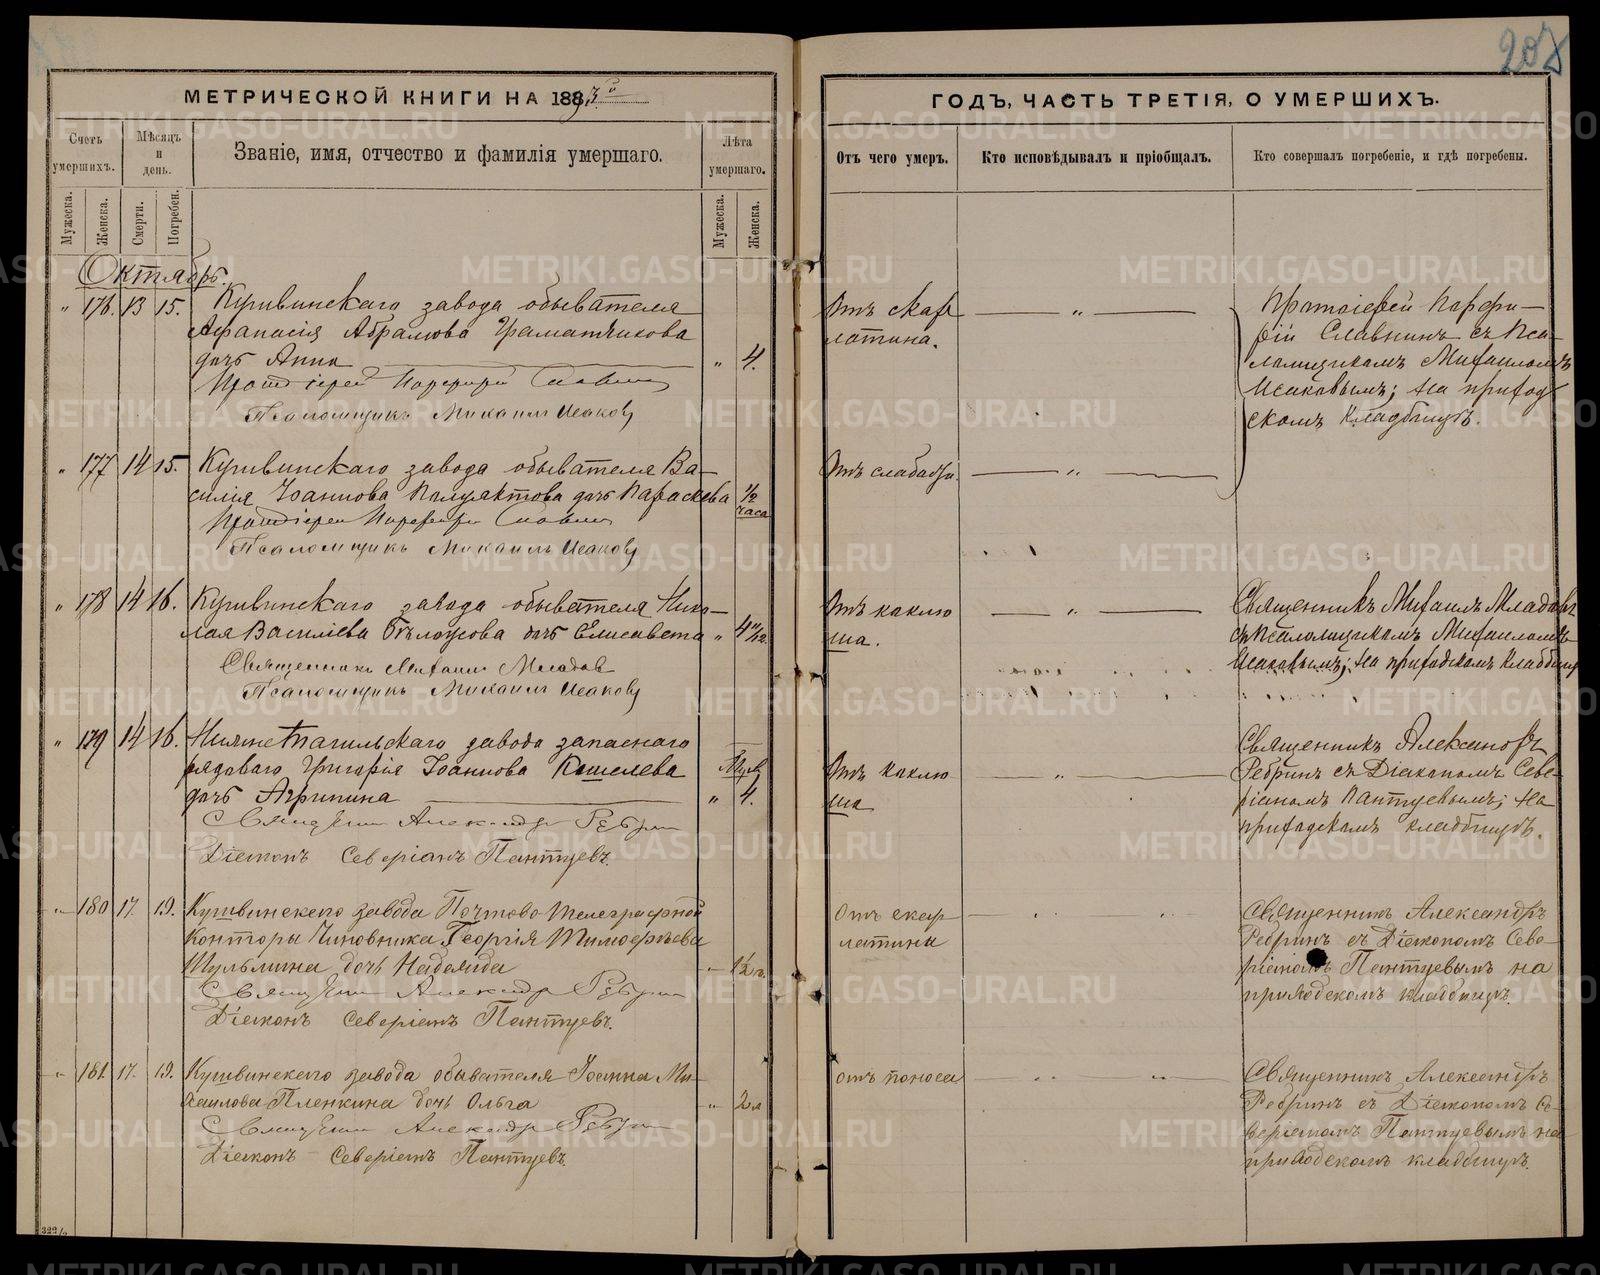 208
МЕТРИЧЕСКОЙ КНИГИ НА 1893й
ГОДЪ, ЧАСТЬ ТРЕТІЯ, О УМЕРШИХЪ.
Счетъ умершихъ.
Мѣсяцъ и день.
Званіе, имя, отчество и фамилія умершаго.
Лѣта умершаго.
Отъ чего умеръ.
Кто исповѣдывалъ и пріобщалъ.
Кто совершалъ погребеніе, и гдѣ погребены.
Мужеска.
Женска.
Смерти.
Погребен.
Мужеска.
Женска.
Октябрь.
" 176. 13 15. Кушвинскаго завода обывателя
Афанасія Абрамова Граматчикова
дочь Анна " 4.
Протоіерей Порфирій Славнинъ
Псаломщикъ Михаилъ Исаковъ
Отъ скар
латина.
"
Протоіерей Порфи-
рій Славнинъ съ Пса-
ломщикомъ Михаиломъ
Исаковымъ; на приход
скомъ кладбищѣ.
" 177 14 15. Кушвинскаго завода обывателя Ва-
силія Іоаннова Полуяктова дочь Параскева 1/2
часа
Протоіерей Порфирій Славнинъ
Псаломщикъ Михаилъ Исаковъ
Отъ слабости.
"
" 178 14 16. Кушвинскаго завода обывателя Нико-
лая Василіева Бѣлоусова дочь Елисавета " 4 11/12.
Священникъ Михаилъ Младовъ
Псаломщикъ Михаилъ Исаковъ
Отъ коклю
ша.
"
Священникъ Михаилъ Младовъ
съ Псаломщикомъ Михаиломъ
Исаковымъ; на приходскомъ кладбищѣ
" 179 14 16. Нижнетагильскаго завода запаснаго
рядоваго Григорія Іоаннова Кошелева
дочь Агрипина " 4.
Священникъ Александръ Ребринъ
Діаконъ Северіанъ Пантуевъ.
Отъ коклю
ша
"
Священникъ Александръ
Ребринъ съ Діакономъ Севе-
ріаномъ Пантуевымъ; на
приходскомъ кладбищѣ.
" 180 17. 19. Кушвинскаго завода Почтово-телеграфной
Конторы Чиновника Георгія Тимофѣева
дочь Надежда " 1½ г.
Священникъ Александръ Ребринъ
Діаконъ Северіанъ Пантуевъ.
Отъ скар-
латины
" "
Священникъ Александръ
Ребринъ съ Діакономъ Севе-
ріаномъ Пантуевымъ на
приходскомъ кладбищѣ.
" 181. 17. 19. Кушвинскаго завода обывателя Іоанна Ми-
хаилова Пленкина дочь Ольга " 2 л
Священникъ Александръ Ребринъ
Діаконъ Северіанъ Пантуевъ.
отъ поноса
" "
Священникъ Александръ
Ребринъ съ Діакономъ Се-
веріаномъ Пантуевымъ на
приходскомъ кладбищѣ.
METRIKI.GASO-URAL.RU